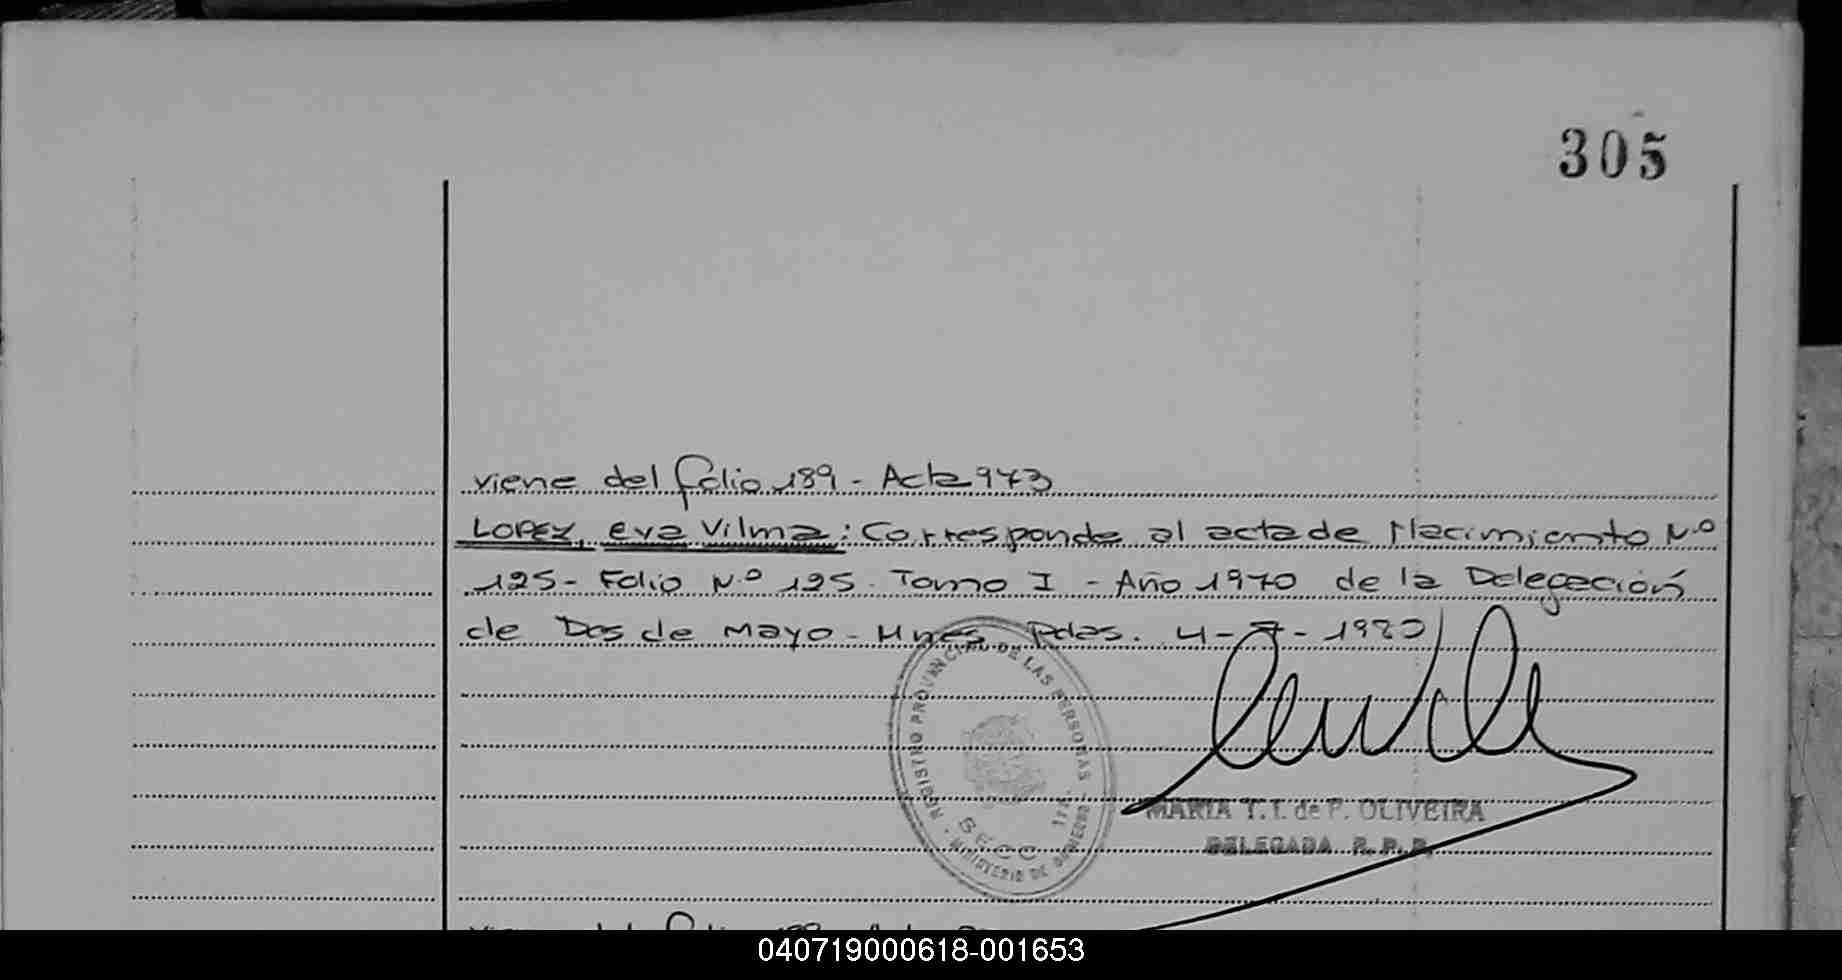 305
viene del folio 189 - Acta 973
LOPEZ, Eva Vilma: Corresponde al acta de Nacimiento N.º
125 - Folio N.º 125 - Tomo I - Año 1970 de la Delegación
de Dos de Mayo - Mnes. Pdas. 4-7-1980
REGISTRO PROVINCIAL DE LAS PERSONAS -
SECC
MINISTERIO DE GOBIERNO
MARIA T. I. de P. OLIVEIRA
DELEGADA R. P. P.
040719000618-001653